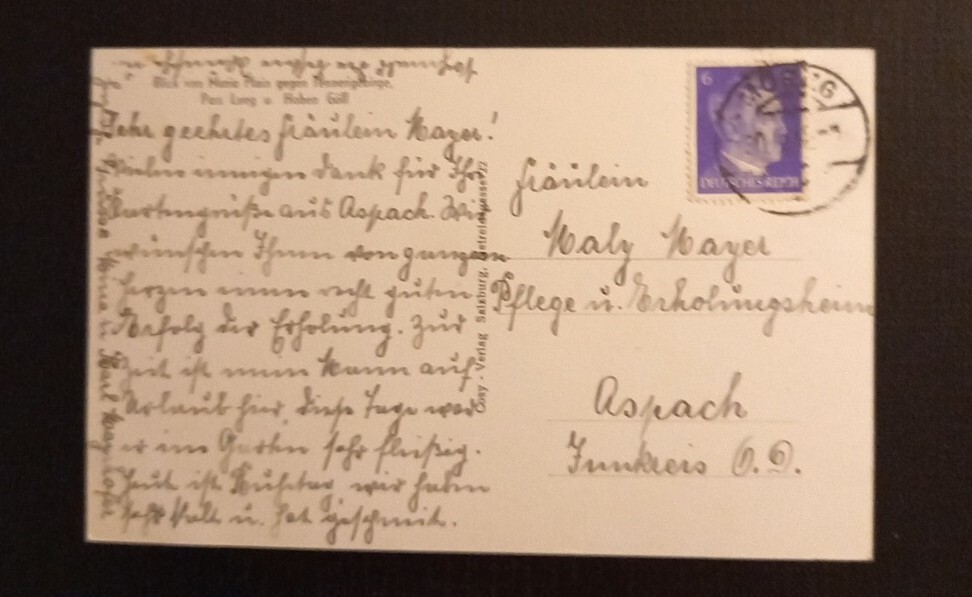 Blick von Maria Plain gegen Tennengebirge,
Pass Lueg u. Hohen Göll
Sehr geehrtes Fräulein Mayer!
Vielen innigen Dank für Ihre
Kartengrüße aus Aspach. Wir
wünschen Ihnen von ganzem
Herzen einen recht guten
Erfolg der Erholung. Zur
Zeit ist mein Mann auf
Urlaub hier, diese Tage war
er im Garten sehr fleißig.
Heut ist Bußtag, wir haben
sehr kalt u. hat geschneit.
Cosy-Verlag Salzburg, Getreidegasse 22
6
DEUTSCHES REICH
Fräulein
Maly Mayer
Pflege u. Erholungsheim
Aspach
Innkreis O.D.